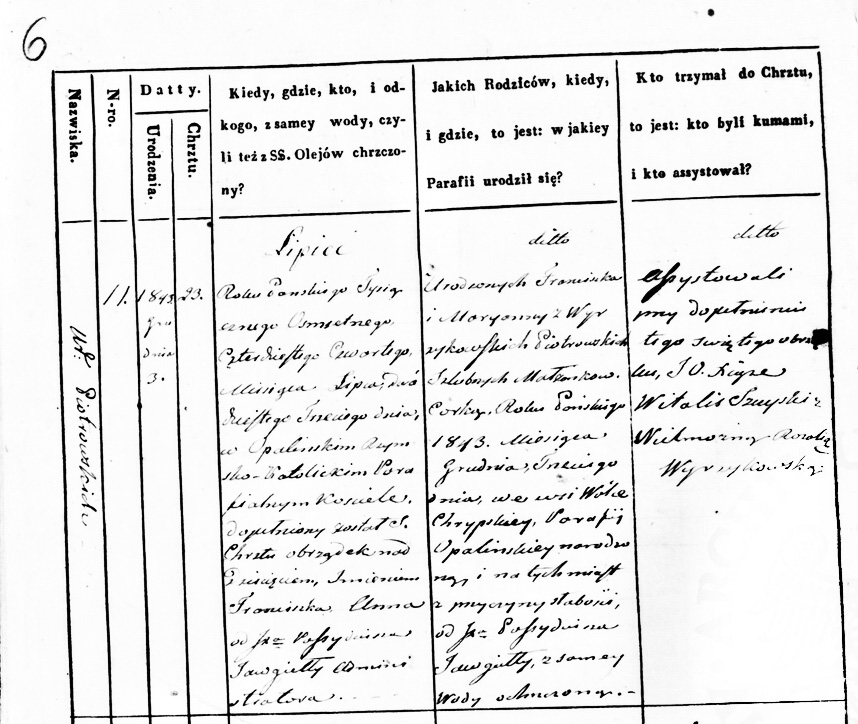 6
Nazwiska.
N-ro.
Datty.
Urodzenia.
Chrztu.
Kiedy, gdzie, kto, i od-
kogo, z samey wody, czy-
li też z SS. Olejów chrzczo-
ny?
Jakich Rodziców, kiedy,
i gdzie, to jest: w jakiey
Parafii urodził się?
Kto trzymał do Chrztu,
to jest: kto byli kumami,
i kto assystował?
Ur. Piotrowskich
11.
1843.
Gru
dnia
3.
23.
Lipiec
Roku Pańskiego Tysią
cznego Osmsetnego
Czterdziestego Czwartego,
Miesiąca Lipca, dwó
dziestego Trzeciego dnia,
w Opalinskim Rzym
sko-Katolickim Para
fialnym Kosciele,
dopełniony został S.
Chrztu obrządek nad
Dziecięciem, Imieniem
Franciszka Anna
od Jx Possydiusza
Jawgiełły Admini
stratora.
ditto
Urodzonych Franciszka
i Maryanny z Wyr
zykowskich Piotrowskich
Szlubnych Małżonków.
Corka, Roku Pańskiego
1843. Miesiąca
Grudnia, Trzeciego
dnia, we wsi Wólce
Chrypskiey, Parafij
Opalinskiey narodzo
na, i na tychmiast
z przyczyny słabości,
od Jx Possydiusza
Jawgiełły, z samey
Wody ochrzczona.
ditto
Assystowali
przy dopełnieniu
tego świętego obrzą
dku, J. O. Xiąże
Witalis Szuyski z
Wielmożną Rozalią
Wyrzykowską